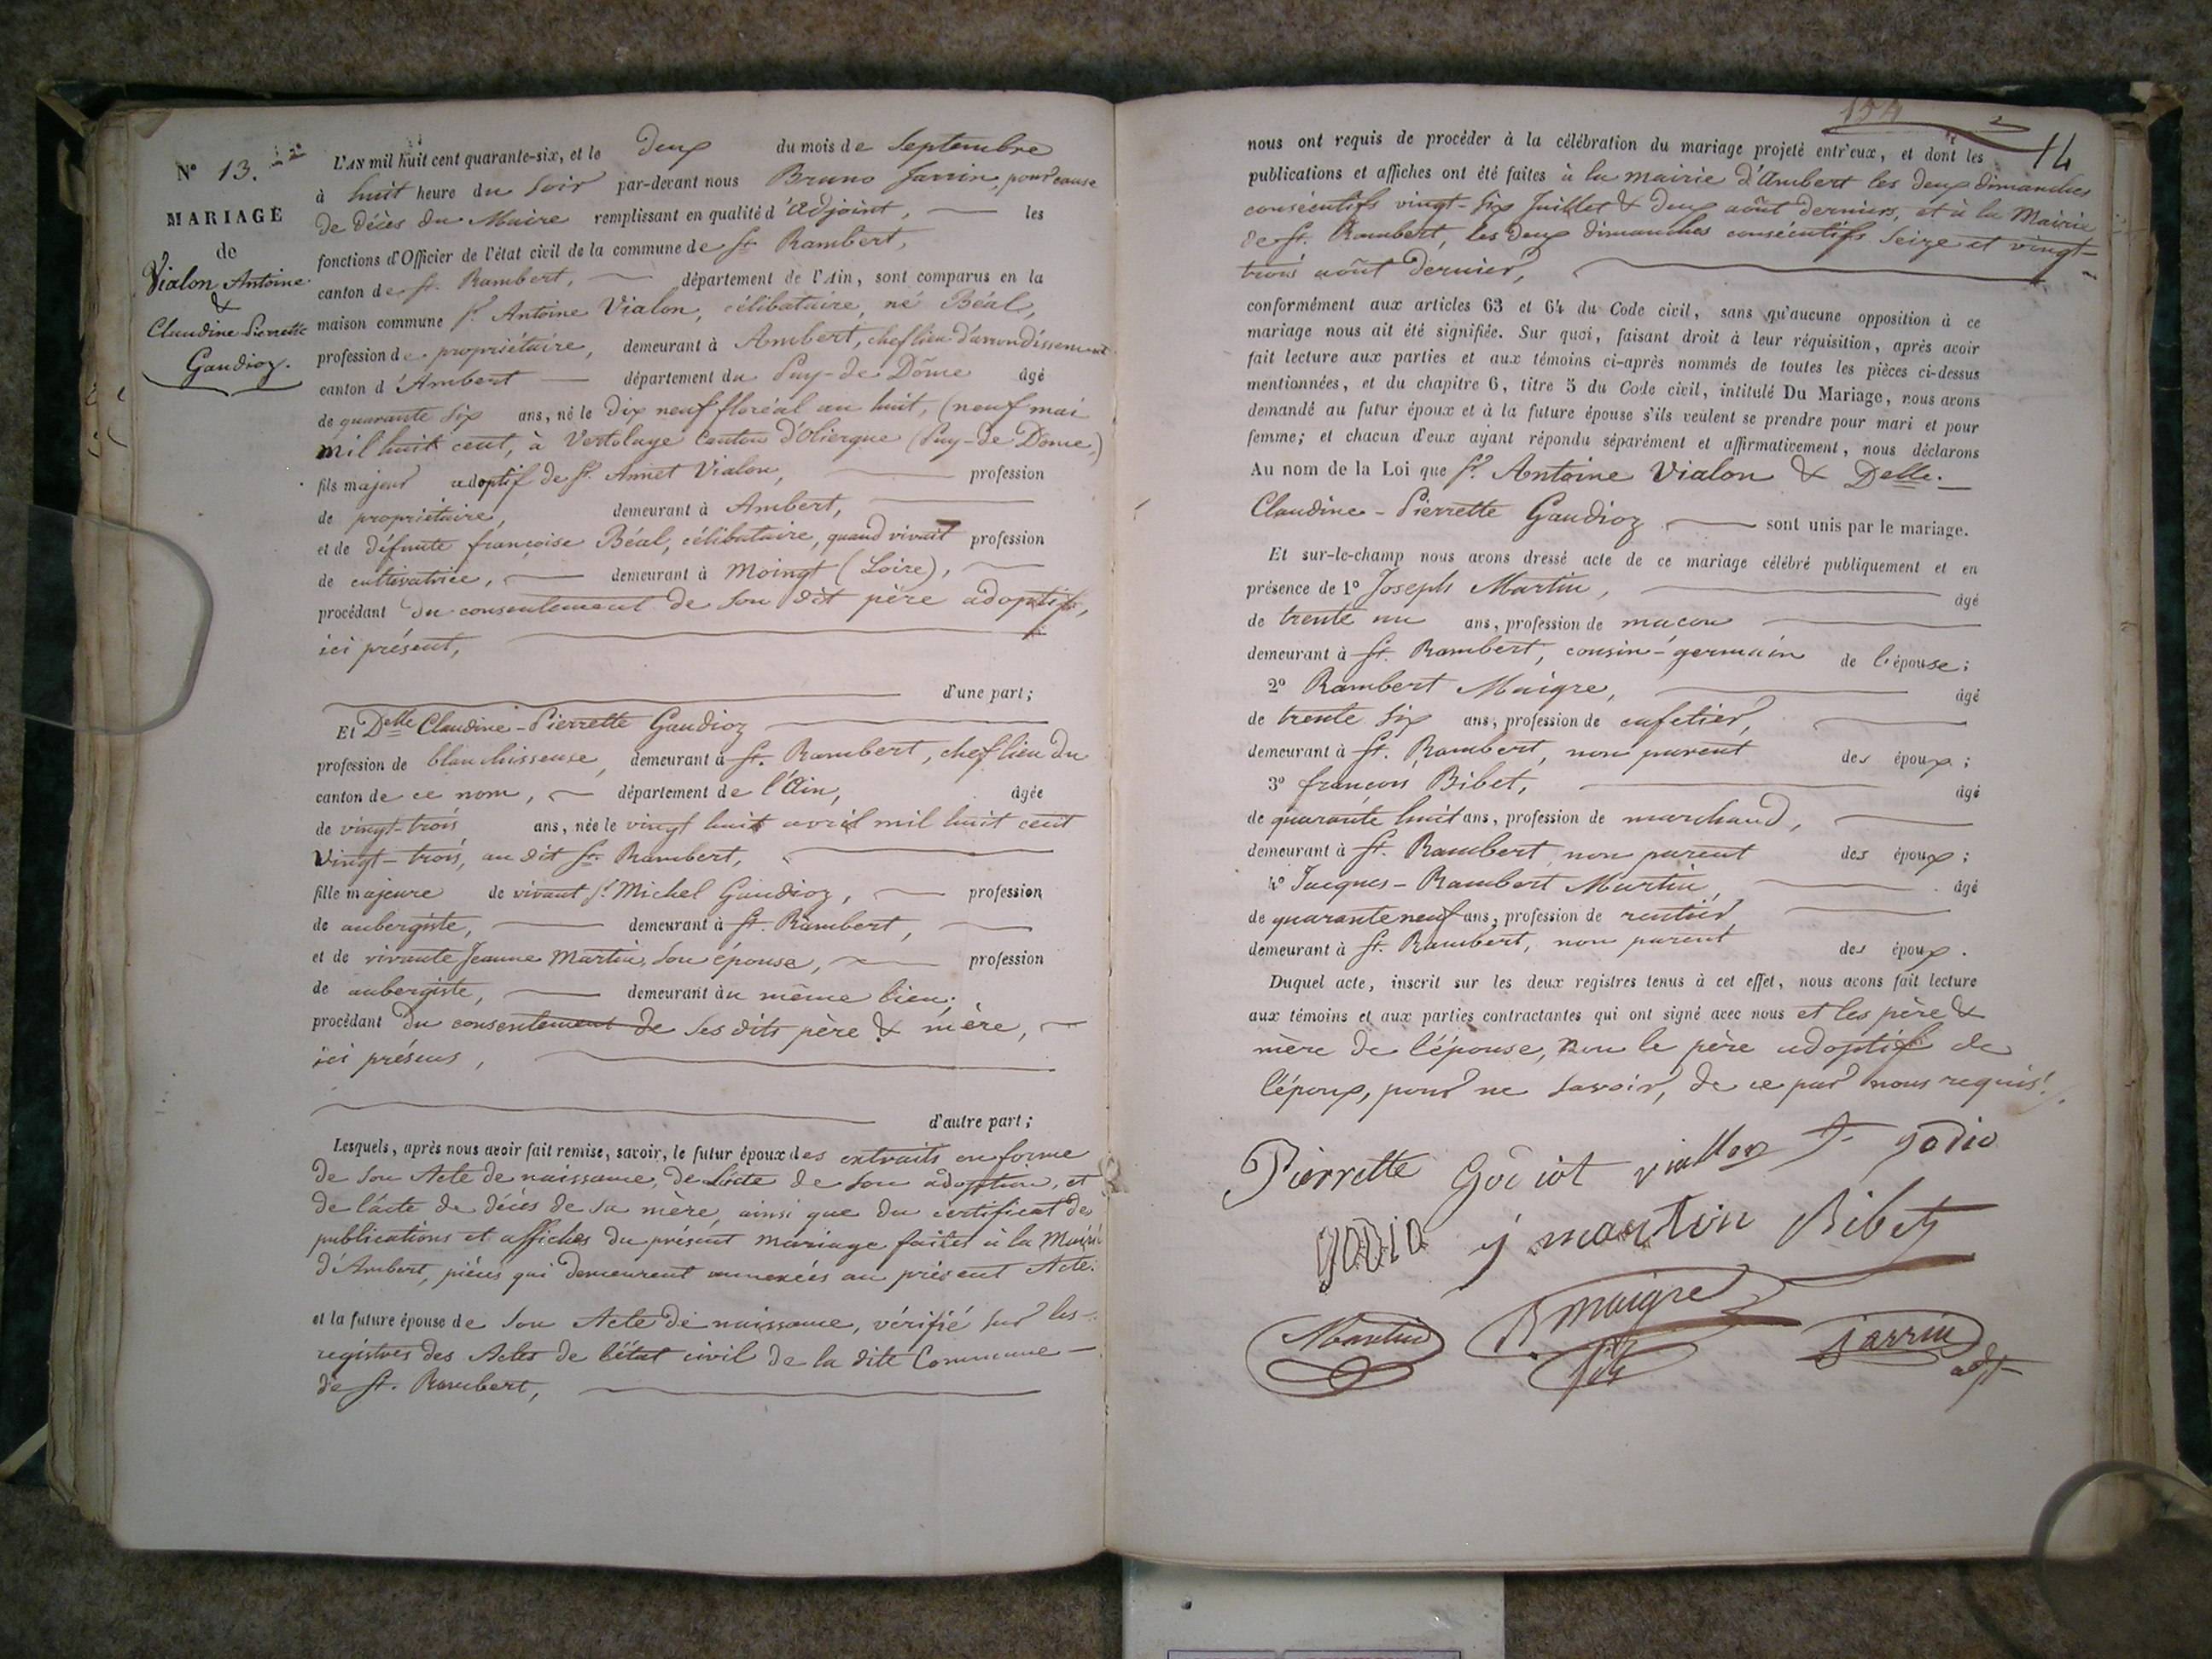 N° 13.
MARIAGE
de
Vialon Antoine
&
Claudine Pierrette
Gaudioz.
L'AN mil huit cent quarante-six, et le deux du mois de Septembre
à huit heure du Soir par-devant nous Bruno Jarrin, pour cause
de décès du Maire remplissant en qualité d'adjoint, les
fonctions d'Officier de l'état civil de la commune de St. Rambert,
canton de St. Rambert, département de l'Ain, sont comparus en la
maison commune Sr. Antoine Vialon, célibataire, né Béal,
profession de propriétaire, demeurant à Ambert, chef lieu d'arrondissement
canton d'Ambert département du Puy-de Dôme âgé
de quarante six ans, né le dix neuf floréal an huit, (neuf mai
mil huit cent, à Vertolaye Canton d'Olierque (Puy-de Dôme,)
fils majeur adoptif de Sr. Annet Vialon, profession
de propriétaire, demeurant à Ambert,
et de défunte françoise Béal, célibataire, quand vivait profession
de cultivatrice, demeurant à Moingt (Loire),
procédant du consentement de Son dit père adoptif,
ici présent,
d'une part;
Et Delle Claudine-Pierrette Gaudioz
profession de blanchisseuse, demeurant à St. Rambert, chef lieu du
canton de ce nom, département de l'Ain, âgée
de vingt-trois ans, née le vingt huit avril mil huit cent
Vingt-trois, au dit St. Rambert,
fille majeure de vivant Sr. Michel Gaudioz, profession
de aubergiste, demeurant à St. Rambert,
et de vivante Jeanne Martin, Son épouse, profession
de aubergiste, demeurant au même lieu,
procédant du consentement de Ses dits père & mère,
ici présens,
d'autre part;
Lesquels, après nous avoir fait remise, savoir, le futur époux des extraits en forme
de Son Acte de naissance, de l'acte de Son adoption, et
de l'acte de décès de Sa mère, ainsi que du certificat de
publications et affiches du présent mariage faites à la Mairie
d'Ambert, pièces qui demeurent annexées au présent Acte.
et la future épouse de Son Acte de naissance, vérifié sur les
registres des Actes de l'état civil de la dite Commune
de St. Rambert,
154
14
nous ont requis de procéder à la célébration du mariage projeté entr'eux, et dont les
publications et affiches ont été faites à la mairie d'Ambert les deux dimanches
consécutifs vingt-six Juillet & deux août derniers, et à la Mairie
de St. Rambert, les deux dimanches consécutifs Seize et vingt-
trois août dernier,
conformément aux articles 63 et 64 du Code civil, sans qu'aucune opposition à ce
mariage nous ait été signifiée. Sur quoi, faisant droit à leur réquisition, après avoir
fait lecture aux parties et aux témoins ci-après nommés de toutes les pièces ci-dessus
mentionnées, et du chapitre 6, titre 5 du Code civil, intitulé Du Mariage, nous avons
demandé au futur époux et à la future épouse s'ils veulent se prendre pour mari et pour
femme; et chacun d'eux ayant répondu séparément et affirmativement, nous déclarons
Au nom de la Loi que Sr. Antoine Vialon & Delle.
Claudine-Pierrette Gaudioz sont unis par le mariage.
Et sur-le-champ nous avons dressé acte de ce mariage célébré publiquement et en
présence de 1° Joseph Martin, âgé
de trente un ans, profession de maçon
demeurant à St. Rambert, cousin-germain de l'épouse;
2° Rambert Maigre, âgé
de trente Six ans, profession de cafetier,
demeurant à St. Rambert, non parent des époux;
3° françois Bibet, âgé
de quarante huit ans, profession de marchand,
demeurant à St. Rambert non parent des époux;
4° Jacques-Rambert Martin, âgé
de quarante neuf ans, profession de rentier
demeurant à St. Rambert, non parent des époux.
Duquel acte, inscrit sur les deux registres tenus à cet effet, nous avons fait lecture
aux témoins et aux parties contractantes qui ont signé avec nous et les père &
mère de l'épouse, non le père adoptif de
l'époux, pour ne Savoir, de ce par nous requis.
Pierrette Godiot viallon godio
godio j martin Bibet
Martin R maigre jarrin
adjt